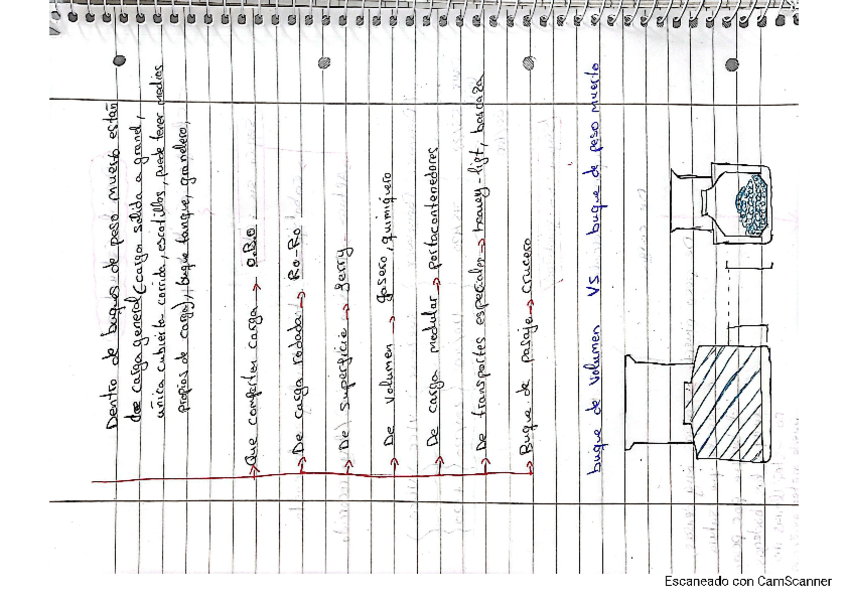 Dentro de buques de peso muerto están
dos carga general (carga solida a granel,
única cubierta corrida, escotillas, puede tener medios
propios de carga), buque tanque, granelero,
→ Que comparten carga → O.B.O
→ De carga rodada → RO-RO
→ De superficie → ferry
→ De volumen → gasero, quimiquero
→ De carga modular → portacontenedores
→ De transportes especiales → heavey-lift, barcaza
→ Buque de pasaje → crucero
buque de volumen VS buque de peso muerto
Escaneado con CamScanner